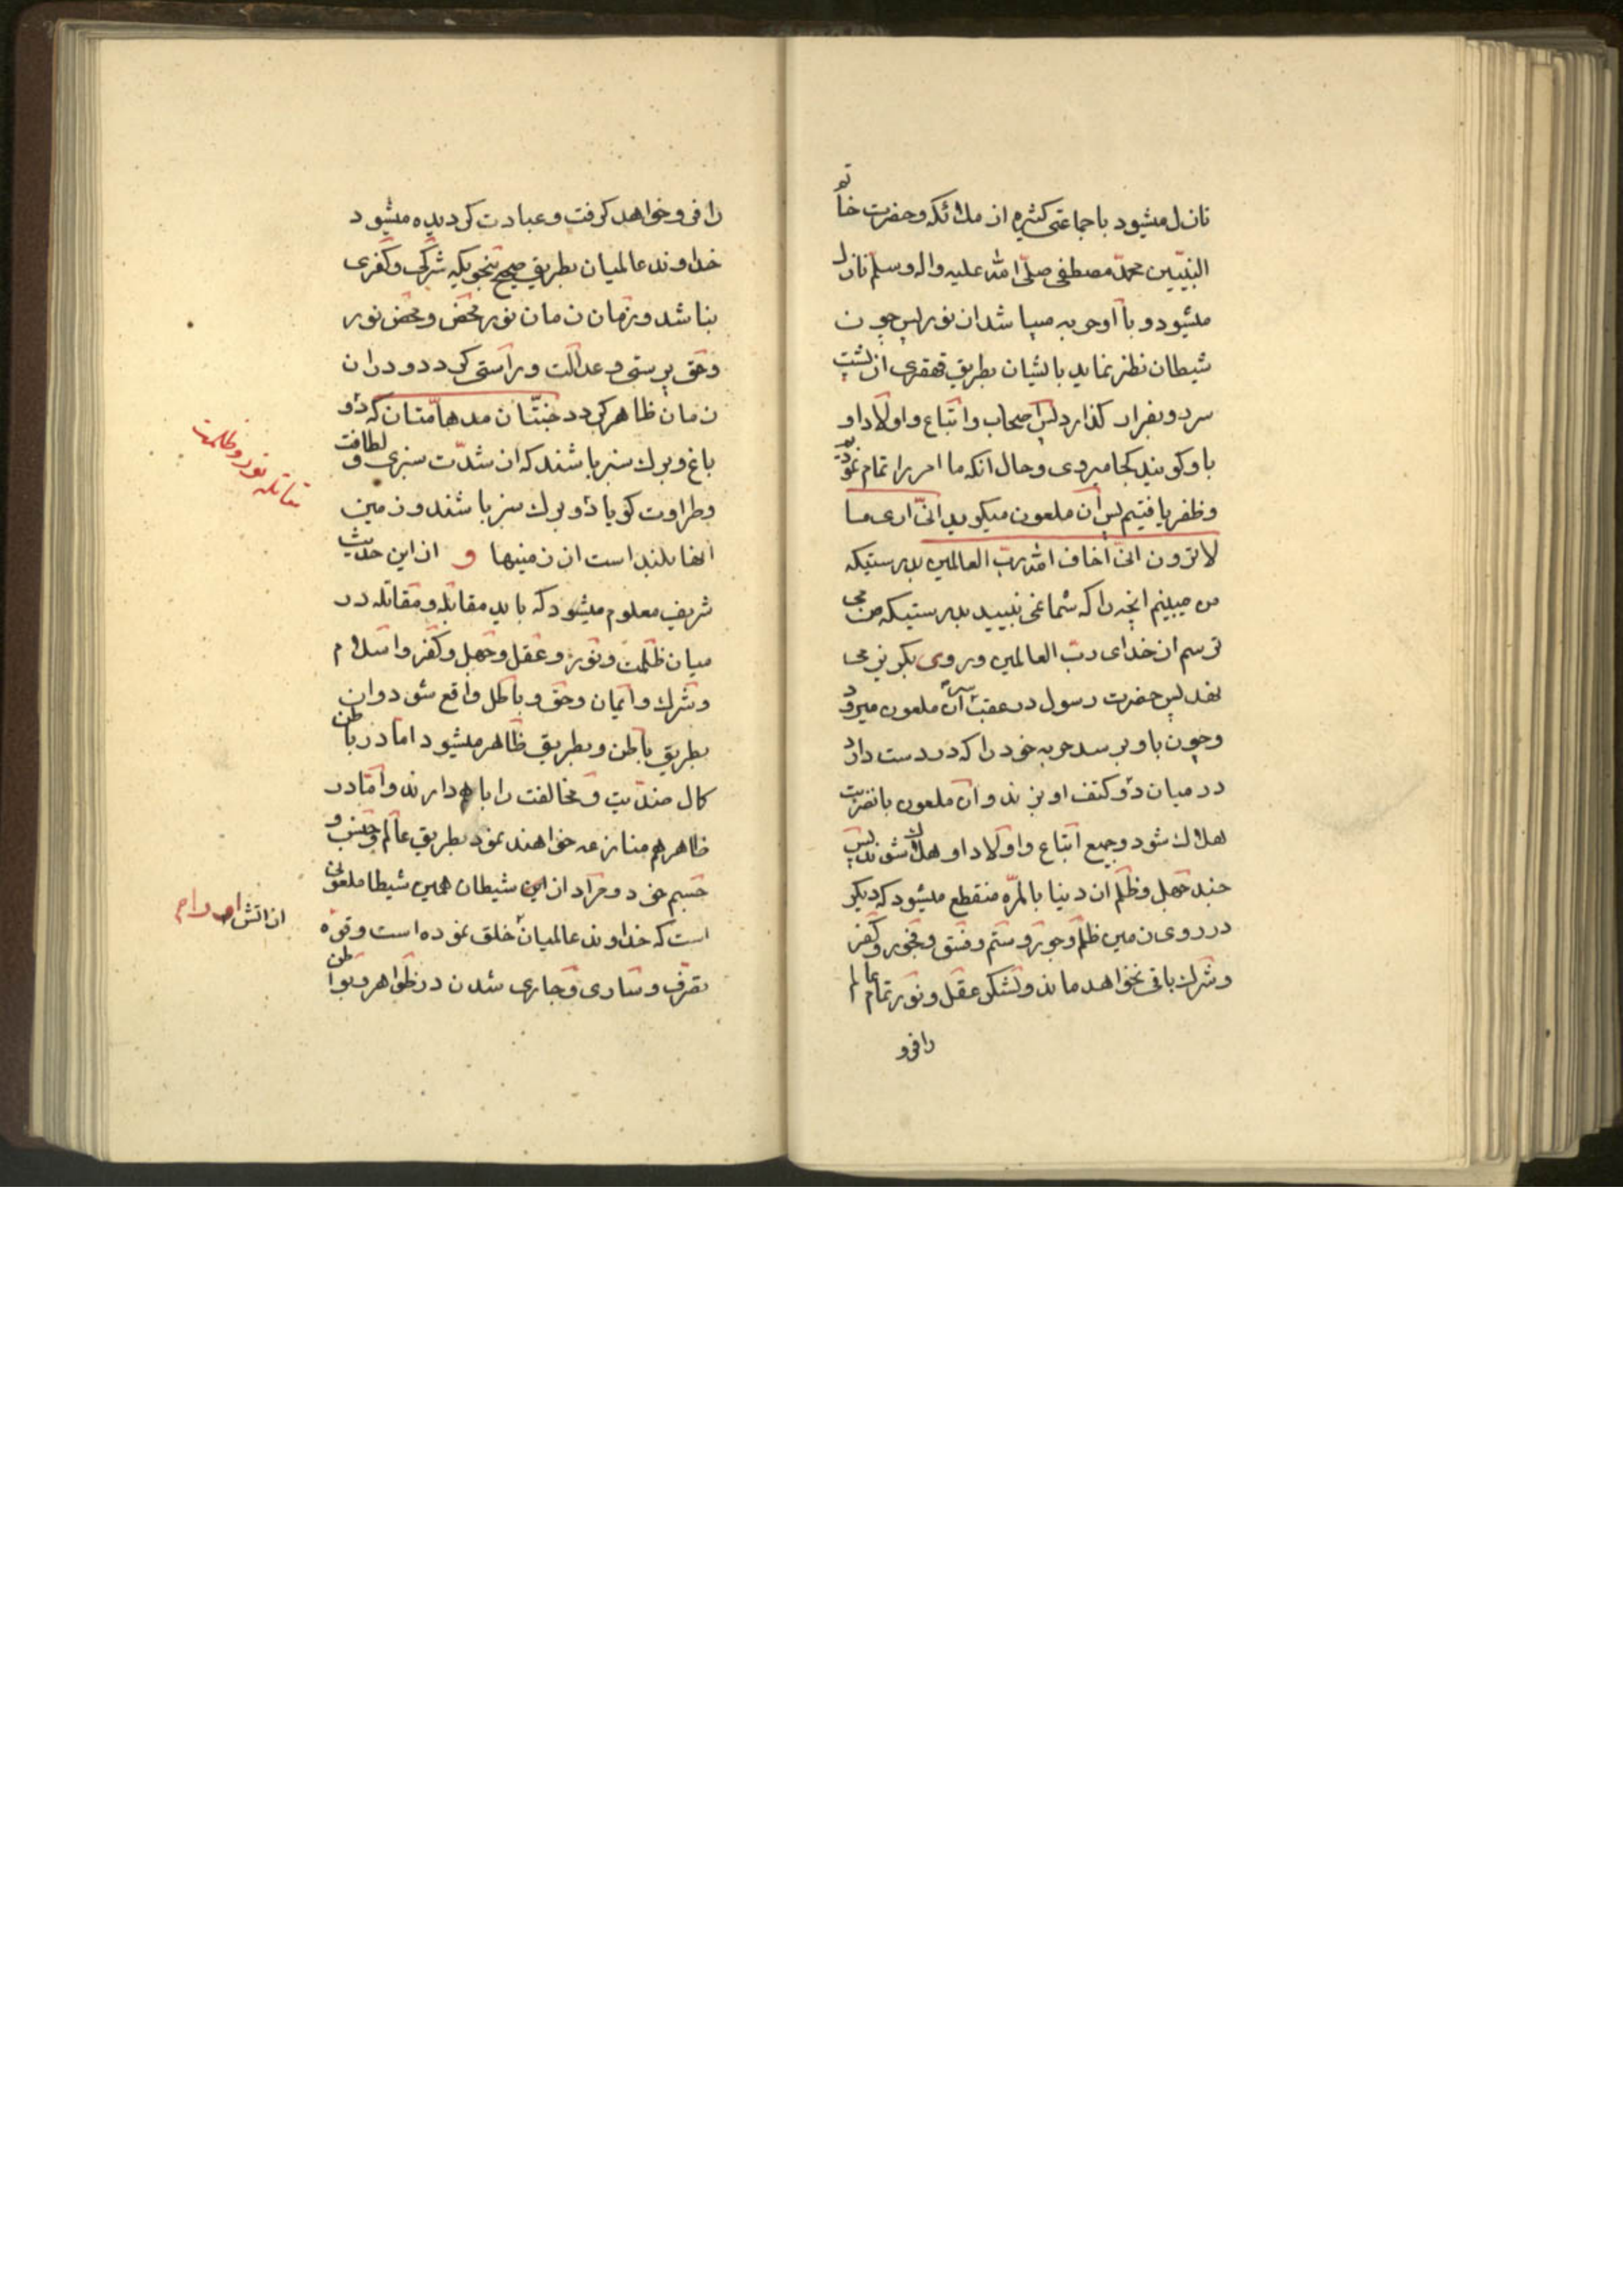 نازل میشود با جماعتی کثیره از ملائکه و حضرت خاتو
النبیین محمد مصطفی صلی الله علیه واله وسلم نازل
میشود و با او حربه میباشد از نور پس چون
شیطان نظر نماید بایشان بطریق قهقری از پشت
سر رو بفرار گذارد پس اصحاب و اتباع و اولاد او
باو گویند کجا میروی و حال آنکه ما امر را تمام نمودیم
و ظفر یافتیم پس آن ملعون میگوید انی اری ما
لا ترون انی اخاف الله رب العالمین بدرستیکه
من میبینم آنچه را که شما نمی بینید بدرستیکه من می
ترسم از خدای رب العالمین و روی بگریز می
نهد پس حضرت رسول در عقب سر آن ملعون میرود
و چون باو برسد حربه خود را که در دست دارد
در میان دو کتف او بزند و آن ملعون بانضربت
هلاک شود و جمیع اتباع و اولاد او هلاک شوند پس
جند جهل و ظلم از دنیا بالمره منقطع میشود که دیگر
در روی زمین ظلم و جور و ستم و فسق و فجور و کفر
و شرک باقی نخواهد ماند و لشکر عقل و نور تمام عالم
رافرو
رافرو خواهد گرفت و عبادت کردیده میشود
خداوند عالمیان بطریق صحیح بنحویکه شرکی و کفری
نباشد و زمان زمان نور محض و محض نور
و حق پرستی و عدالت و راستی گردد و در ان
زمان ظاهر گردد جنتان مدهامتان که دو
باغ و برگ سبز باشند که از شدت سبزی و لطافت
و طراوت گویا دو برگ سبز باشند و زمین
آنها بلند است از زمینها و از این حدیث
شریف معلوم میشود که باید مقابله و مقاتله در
میان ظلمت و نور و عقل و جهل و کفر و اسلام
و شرک و ایمان و حق و باطل واقع شود و ان
بطریق باطن و بطریق ظاهر میشود اما در باطن
کمال ضدیت و مخالفت را باهم دارند و اما در
ظاهر هم منازعه خواهند نمود بطریق عالم و جنس و
جسم خود و مراد از این شیطان همین شیطان ملعونی
است که خداوند عالمیان خلق نموده است و قوه
تصرف و ساری و جاری شدن در ظواهر و بواطن
مقاتله نور و ظلمت
از آتش او را